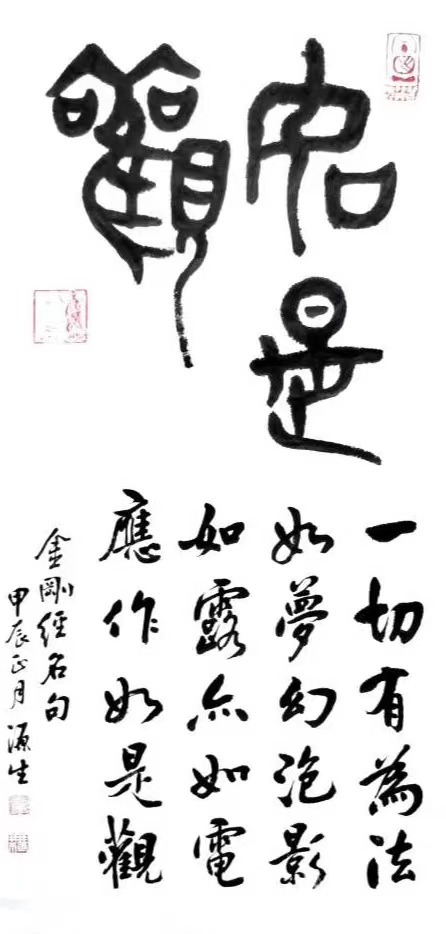 如是
觀
一切有為法
如夢幻泡影
如露亦如電
應作如是觀
金剛經名句
甲辰正月源生